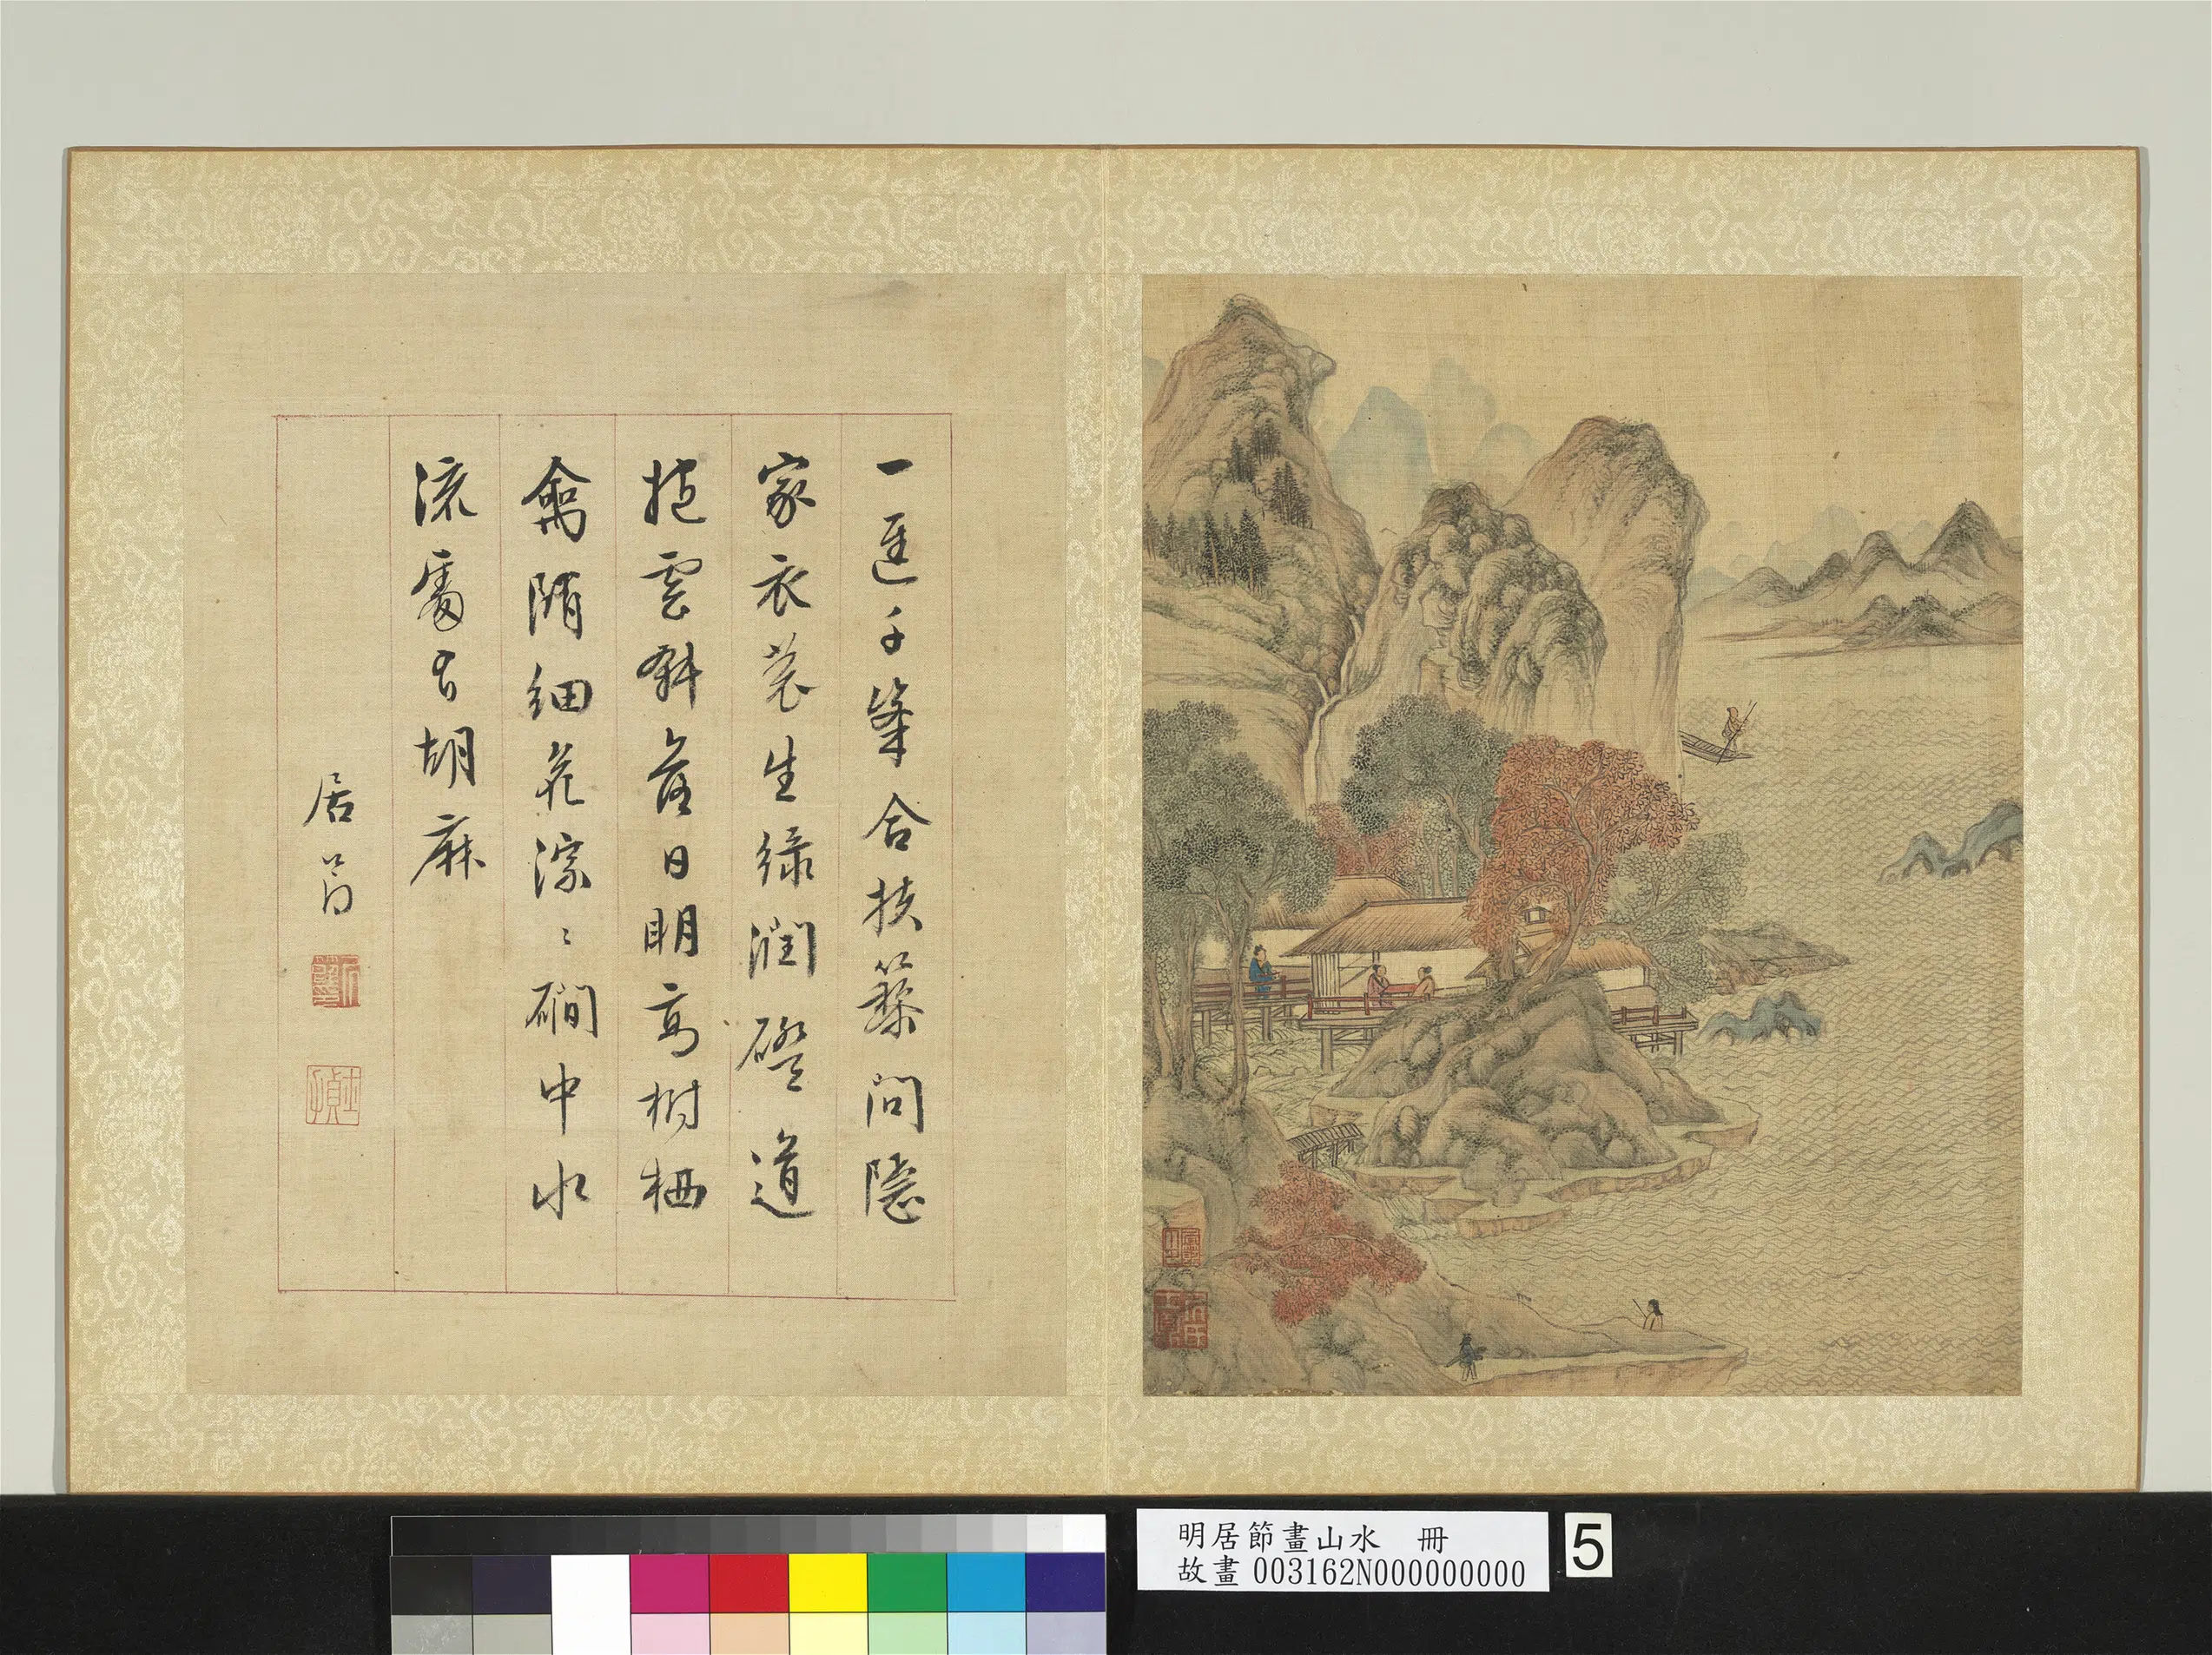 一逕千峯合扶藜問隱
家衣裳生綠潤磴道
抱雲斜落日明高樹栖
禽細花淙〻磵中水
流處有胡麻
居節
明居節畫山水 冊
故畫003162N000000000
5